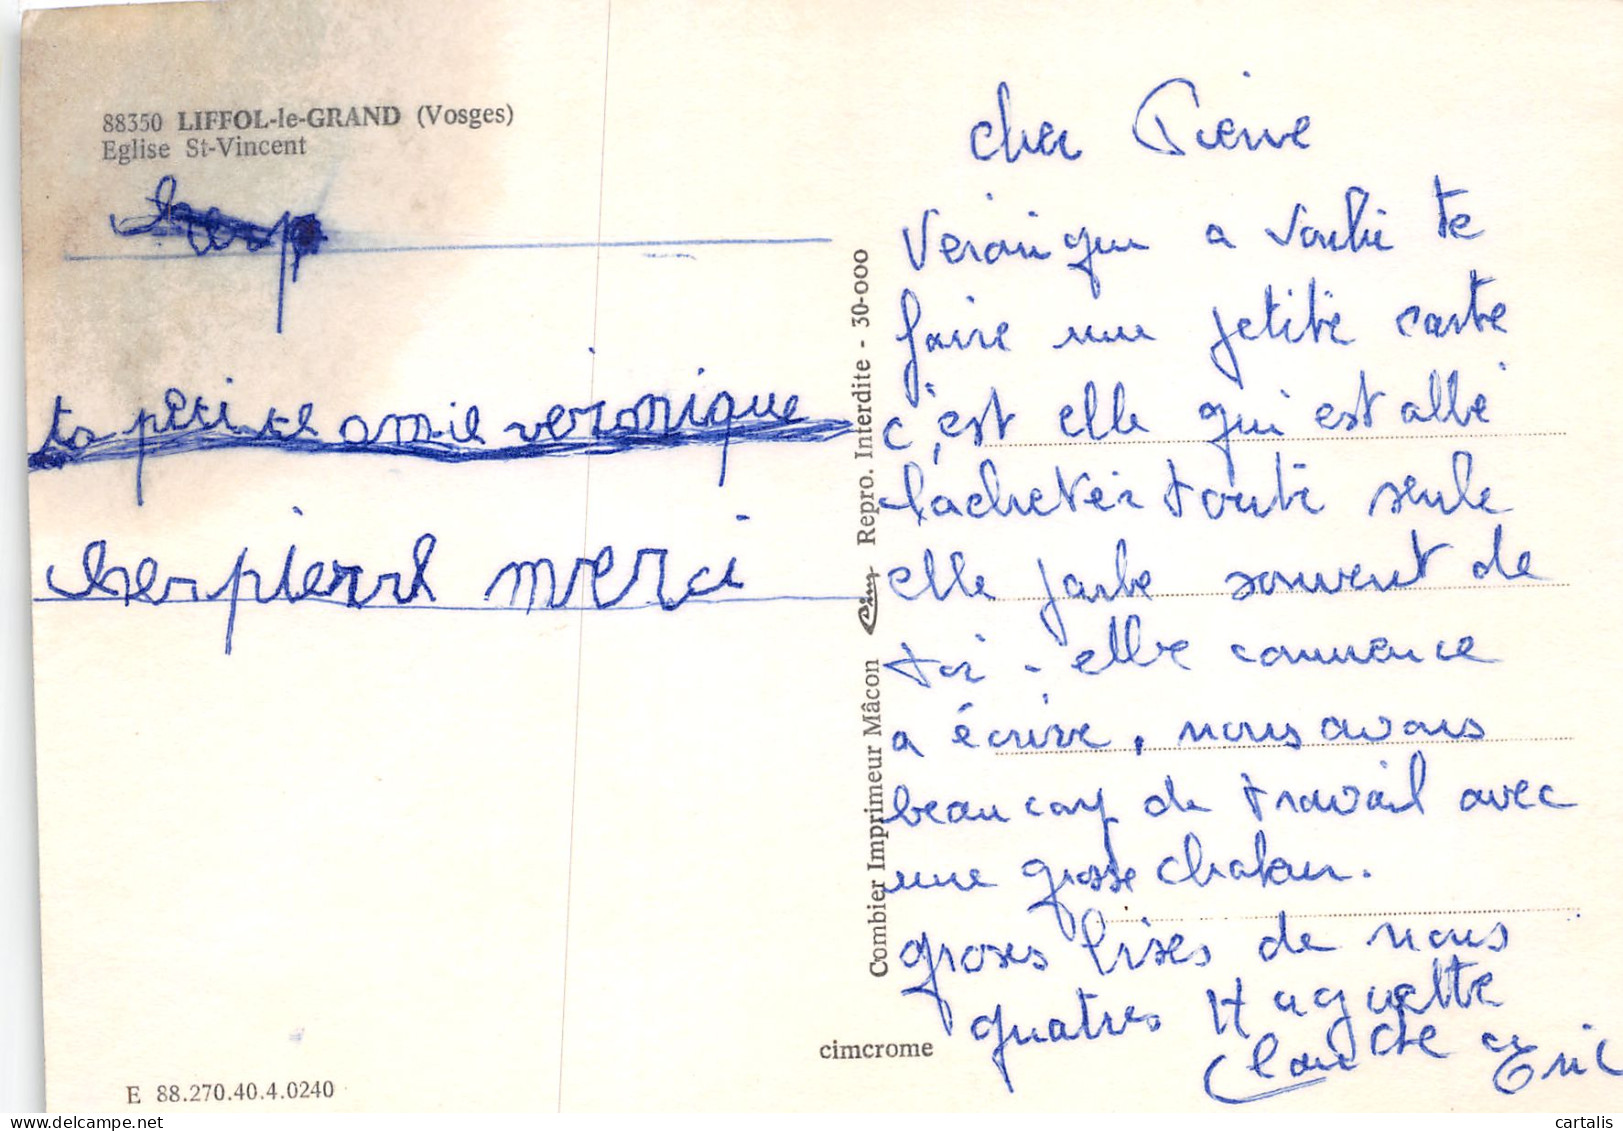 88350 LIFFOL-le-GRAND (Vosges)
Eglise St-Vincent
ta petite amie véronique
cher pierre merci
E 88.270.40.4.0240
Combier Imprimeur Mâcon Cim Repro. Interdite - 30-000
cimcrome
cher Pierre
Veronique a voulu te
faire une petite carte
c'est elle qui est allé
l'acheter toute seule
elle parle souvent de
toi - elle commence
a écrire, nous avons
beaucoup de travail avec
une grosse chaleur.
groses bises de nous
quatres Huguette
Claude Eric
cartalis.com